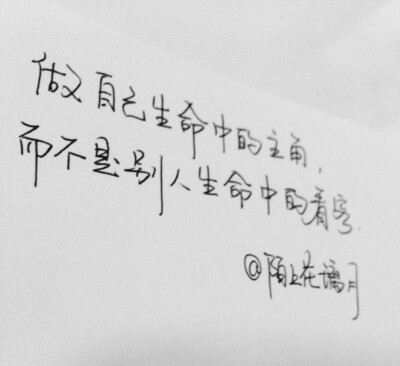 做自己生命中的主角,
而不是别人生命中的看客.
@陌上花謧月